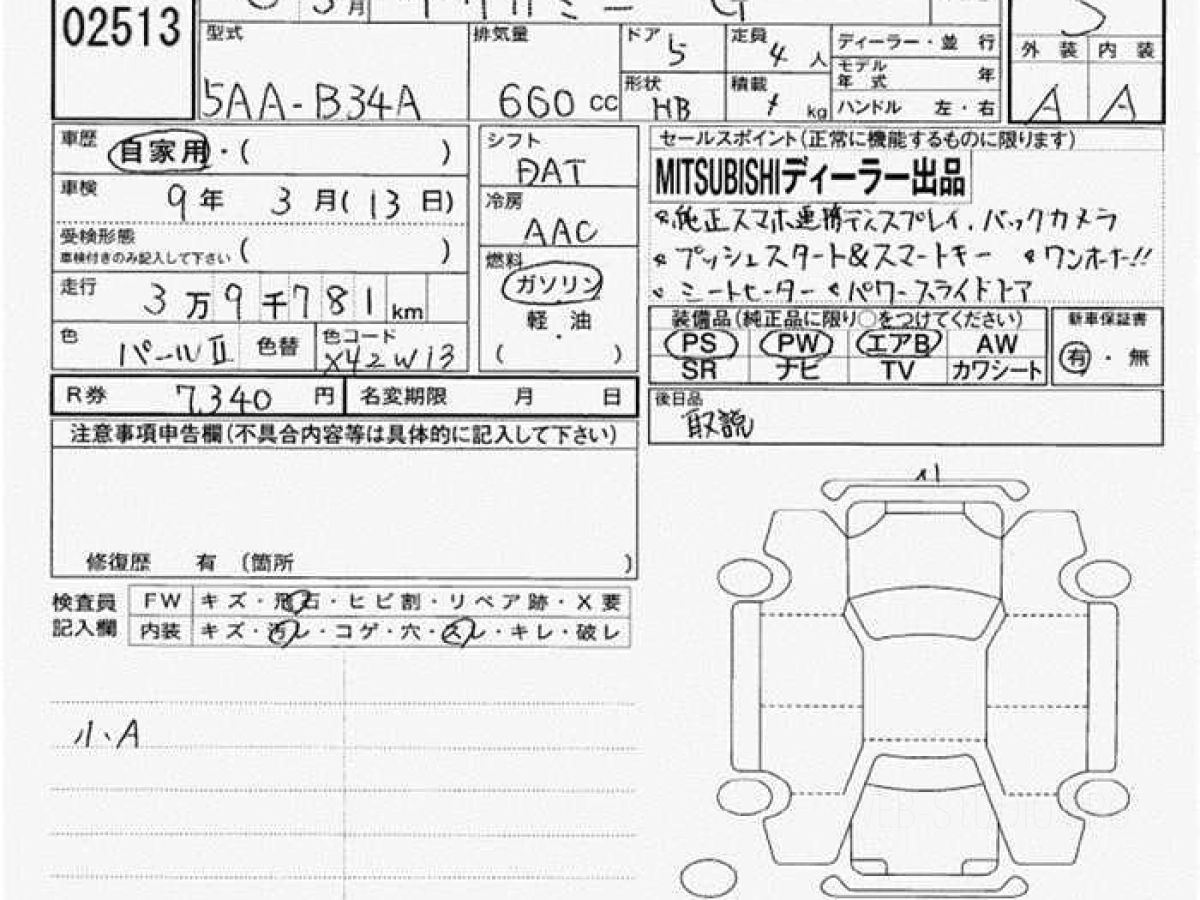 02513
月
型式 排気量 ドア 5 定員 4 人 ディーラー・並 行
モデル年式 年
外 装 内 装
5AA-B34A 660 CC 形状 HB 積載 kg ハンドル 左・右
A A
車歴 自家用・( )
シフト
DAT
セールスポイント(正常に機能するものに限ります)
MITSUBISHIディーラー出品
車検 9年 3月(13日)
冷房
AAC
純正スマホ連携ディスプレイ.バックカメラ
受検形態
車検付きのみ記入して下さい ( )
プッシュスタート&スマートキー ワンオーナー!!
燃料
ガソリン
軽・油
( )
シートヒーター パワースライドドア
走行 3万9千781km
装備品(純正品に限り○をつけてください)
新車保証書
PS PW エアB AW
有・無
SR ナビ TV カワシート
色 パールⅡ 色替 色コード X42W13
R券 7,340 円 名変期限 月 日
後日品
取説
注意事項申告欄(不具合内容等は具体的に記入して下さい)
修復歴 有 (箇所 )
検査員
記入欄
FW キズ・飛石・ヒビ割・リペア跡・X要
内装 キズ・汚レ・コゲ・穴・スレ・キレ・破レ
小A